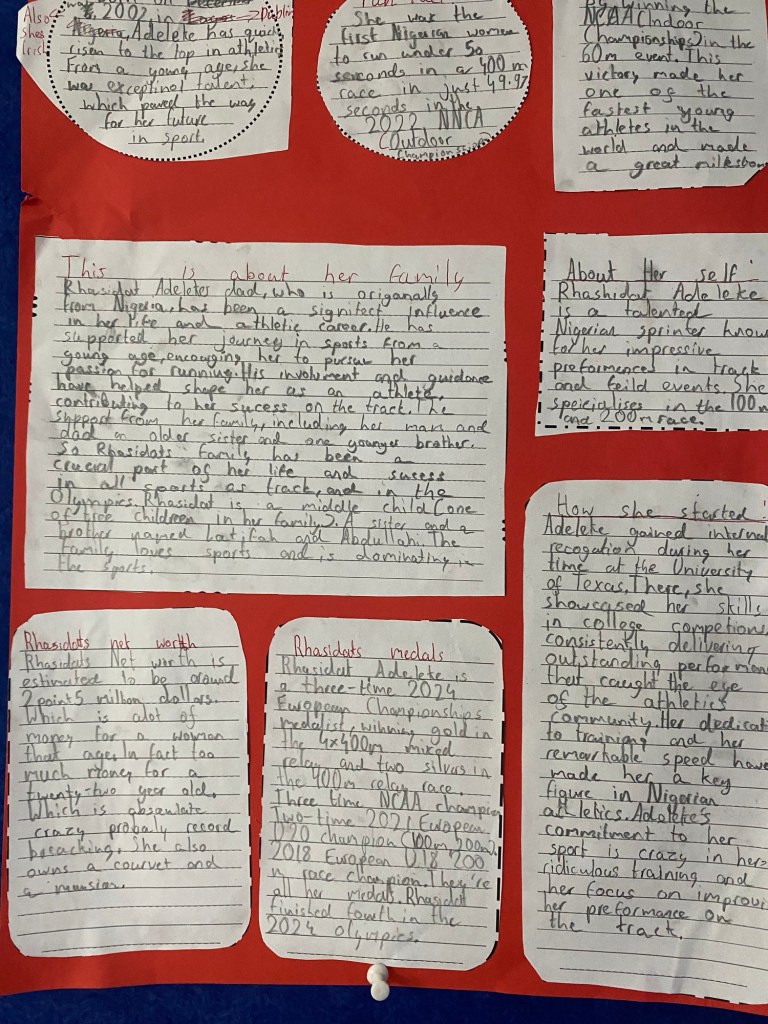 Also
shes
Irish
2002 in Dublin
Adeleke has quick
risen to the top in athletic
From a young age, she
was exceptinol talent,
which paved the way
for her future
in sport.
She was the
first Nigerian women
to run under 50
seconds in a 400 m
race in just 49.97
seconds in the
2022 NNCA
(Outdoor
Championship)
By winning the
NCAA (Indoor
Championships) in the
60m event. This
victory made her
one of the
fastest young
athletes in the
world and made
a great milkston
This is about her family
Rhasidat Adelekes dad, who is origanally
from Nigeria, has been a signifect influence
in her life and athletic career. He has
supported her journey in sports from a
young age, encouging her to pursur her
passion for running. His involvment and guidance
have helped shape her as an athlete,
contributing to her sucess on the track. The
support from her family, including her mam and
dad an older sister and one younger brother.
So Rhasidats family has been a
crucial part of her life and sucess
in all sports as track, and in the
Olympics. Rhasidat is a middle child (one
of tree children in her family). A sister and a
brother named Latifah and Abdullahi. The
family loves sports and is dominating in
the sports.
About Her self:
Rhashidat Adeleke
is a talented
Nigerian sprinter know
for her impressive
preformences in track
and feild events. She
speicialises in the 100m
and 200m race.
How she started:
Adeleke gained internat
recogation during her
time at the University
of Texas. There, she
showcased her skills
in college competions,
consistently delivering
outstanding performan
that caught the eye
of the athletics
community. Her dedicat
to training and her
remarkable speed have
made her a key
figure in Nigerian
athletics. Adeleke's
commitment to her
sport is crazy in hers
ridiculous training and
her focus on improvi
her preformance on
the track.
Rhasidats net worth
Rhasidats Net worth is
estimated to be around
2 point 5 million dollars.
Which is alot of
money for a woman
that age. In fact too
much money for a
twenty-two year old.
Which is absoulute
crazy probaly record
breaching. She also
owns a courvet and
a mansion.
Rhasidats medals
Rhasidat Adeleke is
a three-time 2024
European Championships
medalist, winning gold in
the 4x400m mixed
relay and two silvers in
the 400m relay race.
Three time NCAA champion
Two-time 2021 European
U20 champion (100m, 200m),
2018 European U18 200
m race champion. They're
all her medals. Rhasidat
finished fourth in the
2024 olympics.